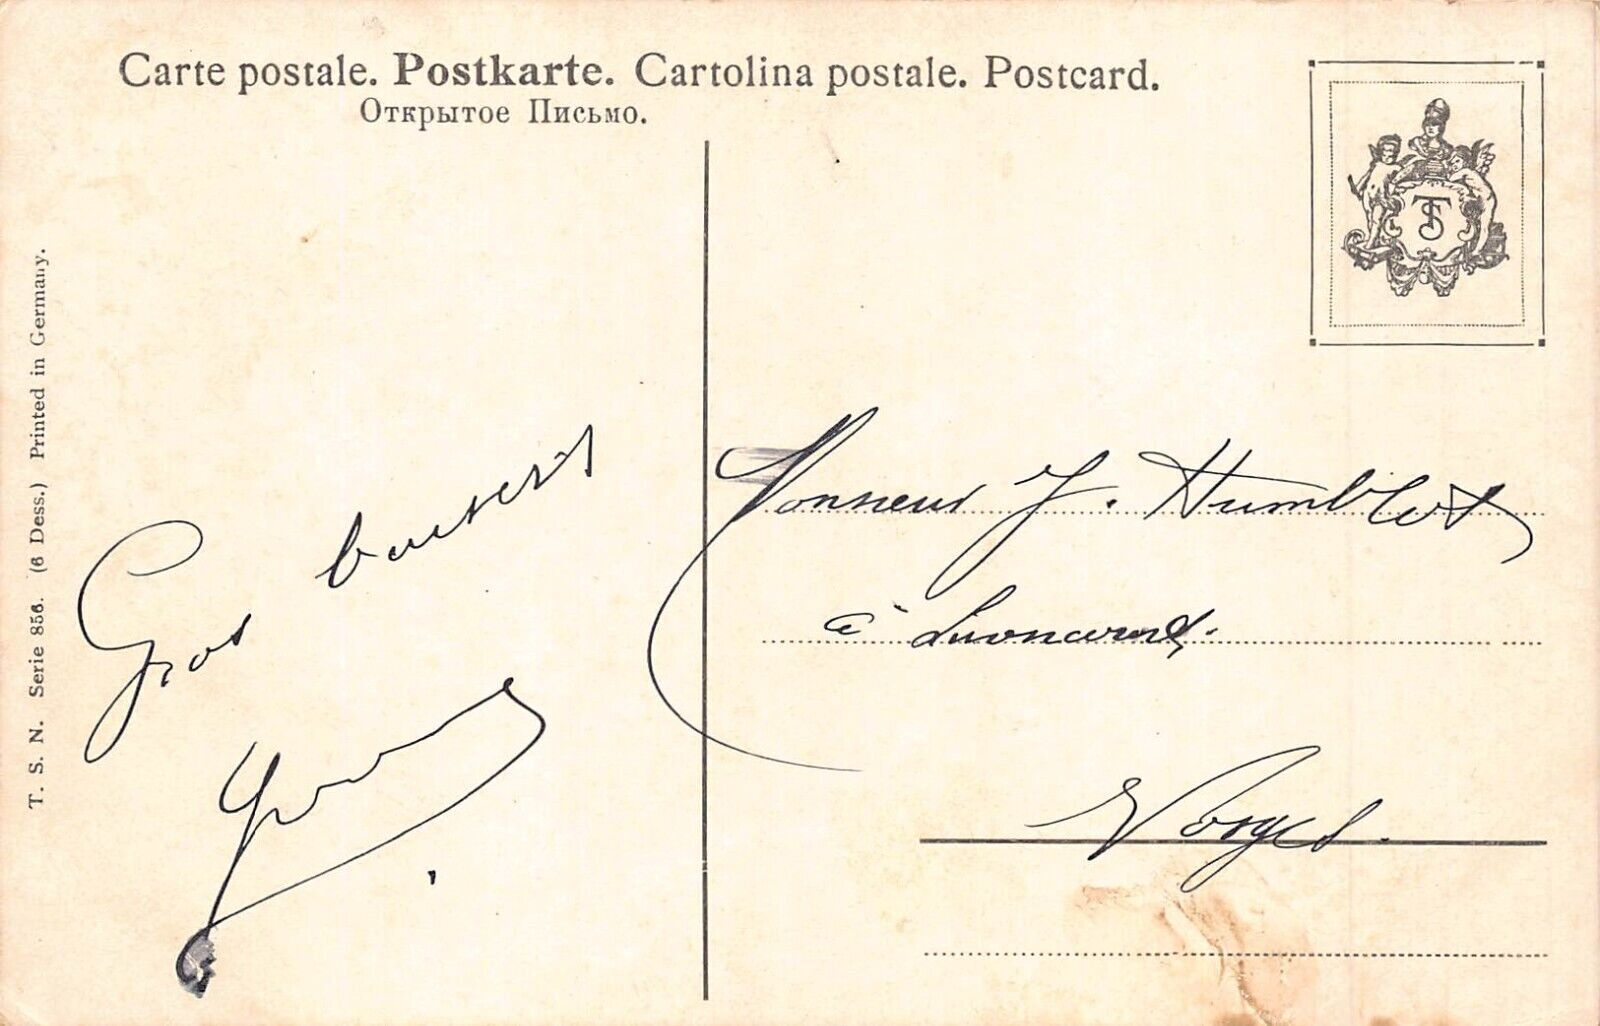 Carte postale. Postkarte. Cartolina postale. Postcard.
Открытое Письмо.
TS
T. S. N. Serie 856. (6 Dess.) Printed in Germany.
Gros baisers
Monsieur J. Humblot
à
Vosges.